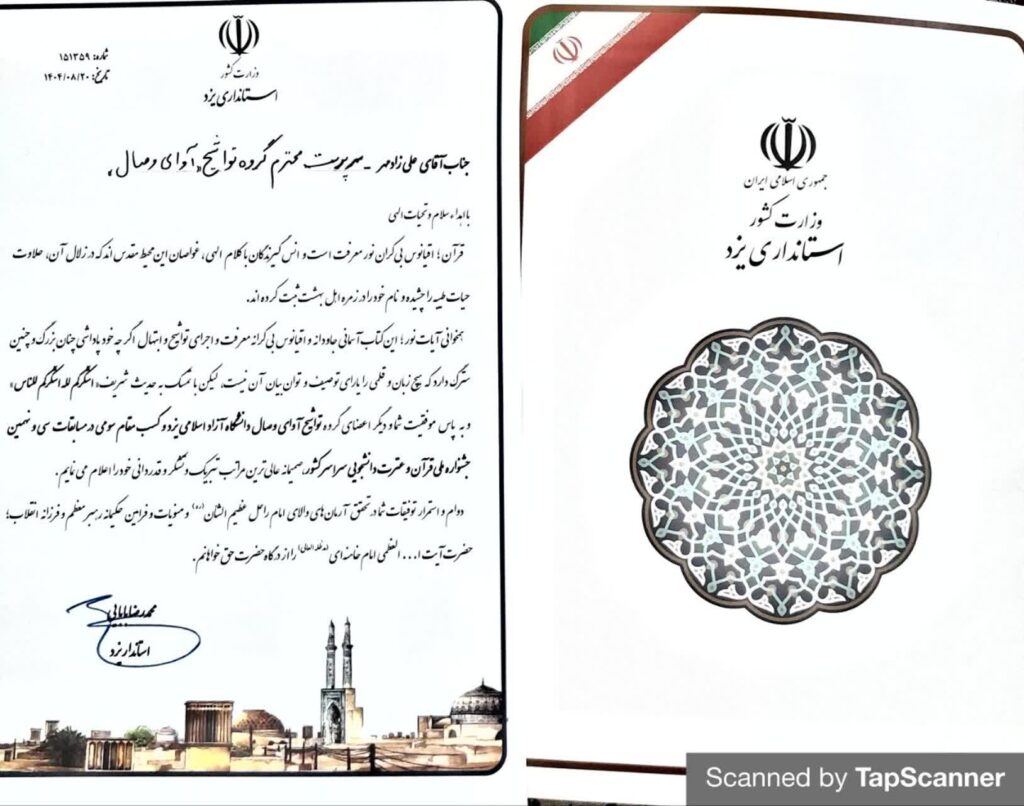 وزارت کشور
استانداری یزد
شماره: ۱۵۱۳۵۹
تاریخ: ۱۴۰۴/۰۸/۲۰
جناب آقای علی زادمهر - سرپرست محترم گروه تواشیح «آوای وصال»
با اهداء سلام و تحیات الهی
قرآن؛ اقیانوس بی کران نور معرفت است و انس گیرندگان با کلام الهی، غواصان این محیط مقدس اند که در زلال آن، حلاوت
حیات طیبه را چشیده و نام خود را در زمره اهل بهشت ثبت کرده اند.
همخوانی آیات نور؛ این کتاب آسمانی جاودانه و اقیانوس بی کرانه معرفت و اجرای تواشیح و ابتهال اگر چه خود پاداشی چنان بزرگ و چنین
سترگ دارد که هیچ زبان و قلمی را یارای توصیف و توان بیان آن نیست، لیکن با تمسک به حدیث شریف «اشکرکم لله اشکرکم للناس»
و به پاس موفقیت شما و دیگر اعضای گروه تواشیح آوای وصال دانشگاه آزاد اسلامی یزد و کسب مقام سومی در مسابقات سی و نهمین
جشنواره ملی قرآن و عترت دانشجویی سراسر کشور، صمیمانه عالی ترین مراتب تبریک و تشکر و قدردانی خود را اعلام می نمایم.
دوام و استمرار توفیقات شما در تحقق آرمان های والای امام راحل عظیم الشان (ره) و منویات و فرامین حکیمانه رهبر معظم و فرزانه انقلاب؛
حضرت آیت ا... العظمی امام خامنه ای (مدظله العالی) را از درگاه حضرت حق خواهانم.
محمدرضا بابایی
استاندار یزد
جمهوری اسلامی ایران
وزارت کشور
استانداری یزد
Scanned by TapScanner